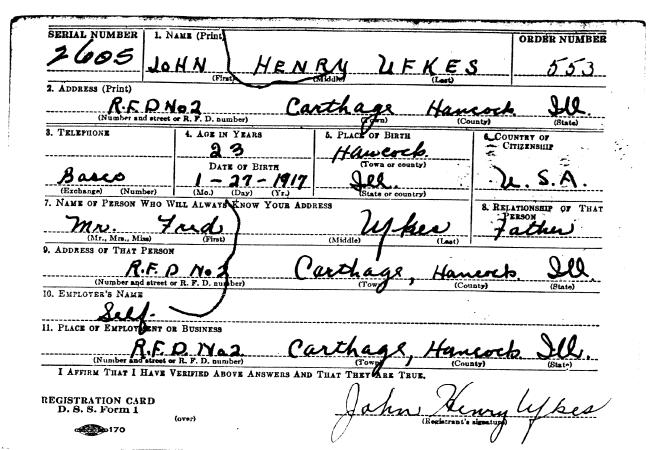 SERIAL NUMBER 1. NAME (Print) ORDER NUMBER
2605 JOHN HENRY UFKES 553
(First) (Middle) (Last)
2. ADDRESS (Print)
R.F.D No2 Carthage Hancock Ill.
(Number and street or R. F. D. number) (Town) (County) (State)
3. TELEPHONE 4. AGE IN YEARS 5. PLACE OF BIRTH 6. COUNTRY OF CITIZENSHIP
23 Hancock
DATE OF BIRTH (Town or county)
Basco 1-27-1917 Ill. U.S.A.
(Exchange) (Number) (Mo.) (Day) (Yr.) (State or country)
7. NAME OF PERSON WHO WILL ALWAYS KNOW YOUR ADDRESS 8. RELATIONSHIP OF THAT PERSON
Mr. Fred Ufkes Father
(Mr., Mrs., Miss) (First) (Middle) (Last)
9. ADDRESS OF THAT PERSON
R.F.D No2 Carthage, Hancock Ill.
(Number and street or R. F. D. number) (Town) (County) (State)
10. EMPLOYER'S NAME
Self.
11. PLACE OF EMPLOYMENT OR BUSINESS
R.F.D. No2 Carthage, Hancock Ill.
(Number and street or R. F. D. number) (Town) (County) (State)
I AFFIRM THAT I HAVE VERIFIED ABOVE ANSWERS AND THAT THEY ARE TRUE.
REGISTRATION CARD
D. S. S. Form 1 (over) John Henry Ufkes
(Registrant's signature)
170